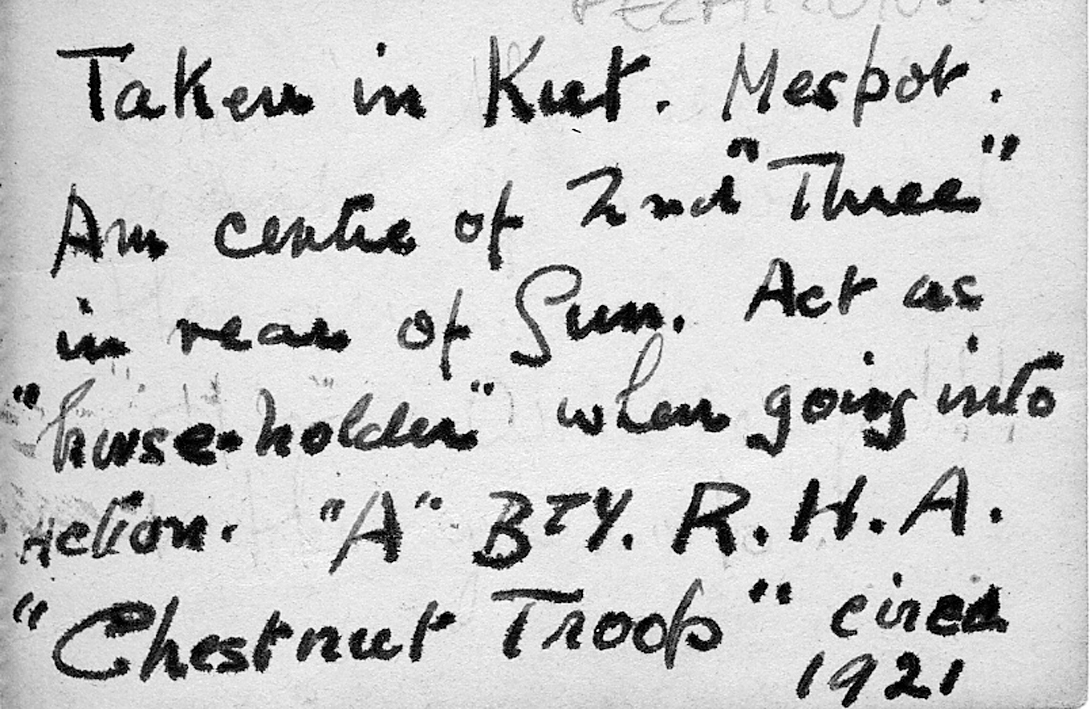 Taken in Kut. Mespot.
Am centre of 2nd "Three"
in rear of Gun. Act as
"horse-holder" when going into
action. "A" BTY. R.H.A.
"Chestnut Troop" circa
1921